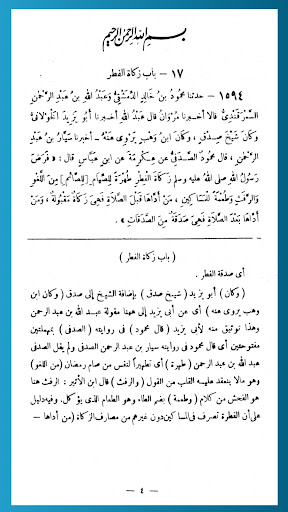 بسم الله الرحمن الرحيم
١٧ — باب زكاة الفطر
١٥٩٤ — حدثنا محمود بن خالد الدمشقي وعبد الله بن عبد الرحمن
السمرقندي قالا أخبرنا مروان قال أخبرنا أبو يزيد الخولاني
وكان شيخ صدق ، وكان ابن وهب يروى عنه — أخبرنا سيار بن عبد
الرحمن ، قال محمود الصدفي عن عكرمة عن ابن عباس قال : « فرض
رسول الله صلى الله عليه وسلم زكاة الفطر طهرة للصيام [للصائم] من اللغو
والرفث وطعمة للمساكين ، من أداها قبل الصلاة فهي زكاة مقبولة ، ومن
أداها بعد الصلاة فهي صدقة من الصدقات » .
( باب زكاة الفطر )
أى صدقة الفطر .
( وكان ) أبو يزيد ( شيخ صدق ) بإضافة الشيخ إلى صدق ( وكان ابن
وهب يروى عنه ) أى عن أبى يزيد إلى ههنا مقولة عبد الله بن عبد الرحمن
وهذا توثيق منه لأبى يزيد ( قال محمود ) فى روايته ( الصدفى ) بمهملتين
مفتوحتين أى قال محمود فى روايته سيار بن عبد الرحمن الصدفى ولم يقل الصدفى
عبد الله بن عبد الرحمن ( طهرة ) أى تطهيراً لنفس من صام رمضان ( من اللغو )
وهو مالا ينعقد عليه القلب من القول ( والرفث ) قال ابن الأثير : الرفث هنا
هو الفحش من كلام ( وطعمة ) بضم الطاء وهو الطعام الذى يؤكل . وفيه دليل
على أن الفطرة تصرف فى المساكين دون غيرهم من مصارف الزكاة ( من أداها —
— ٤ —